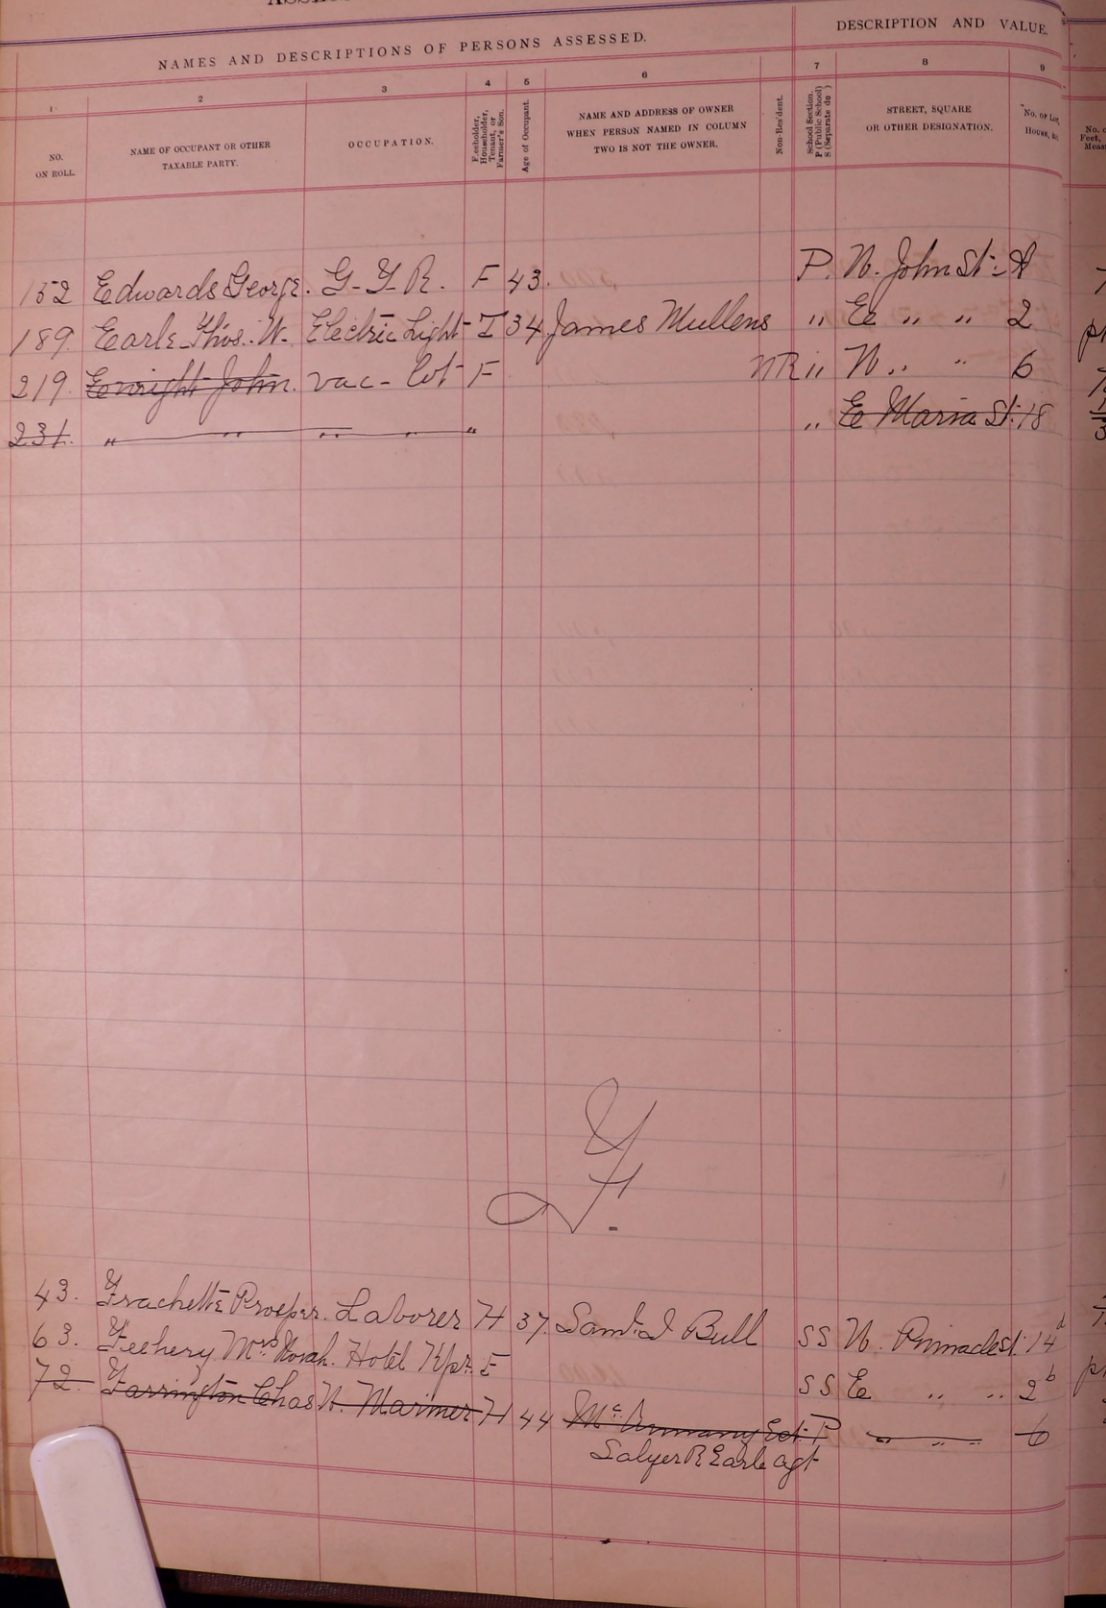 NAMES AND DESCRIPTIONS OF PERSONS ASSESSED. DESCRIPTION AND VALUE.
1 2 3 4 5 6 7 8 9
NO. ON ROLL. NAME OF OCCUPANT OR OTHER TAXABLE PARTY. OCCUPATION. Freeholder, Householder, Tenant, or Farmer's Son. Age of Occupant. NAME AND ADDRESS OF OWNER WHEN PERSON NAMED IN COLUMN TWO IS NOT THE OWNER. Non-Resident. School Section. P (Public School) S (Separate do ) STREET, SQUARE OR OTHER DESIGNATION. No. of Lot, House, &c.
152 Edwards George. G. T. R. F 43. P. W. John St:
189. Earle Thos. W. Electric Light T 34 James Mullens " E " " 2
219. Enright John. vac- lot F NR " W " " 6
231. " " " " " " E Maria St: 18
F.
43. Frachette Prosper. Laborer H 37. Saml. I Bull SS W. Pinnacle St. 14d
63. Feehery Mrs Norah. Hotel Kpr. F SS E " " 2b
72. Farrington Chas W. Mariner H 44 Est. P " " " 6
Salyer R Earle agt